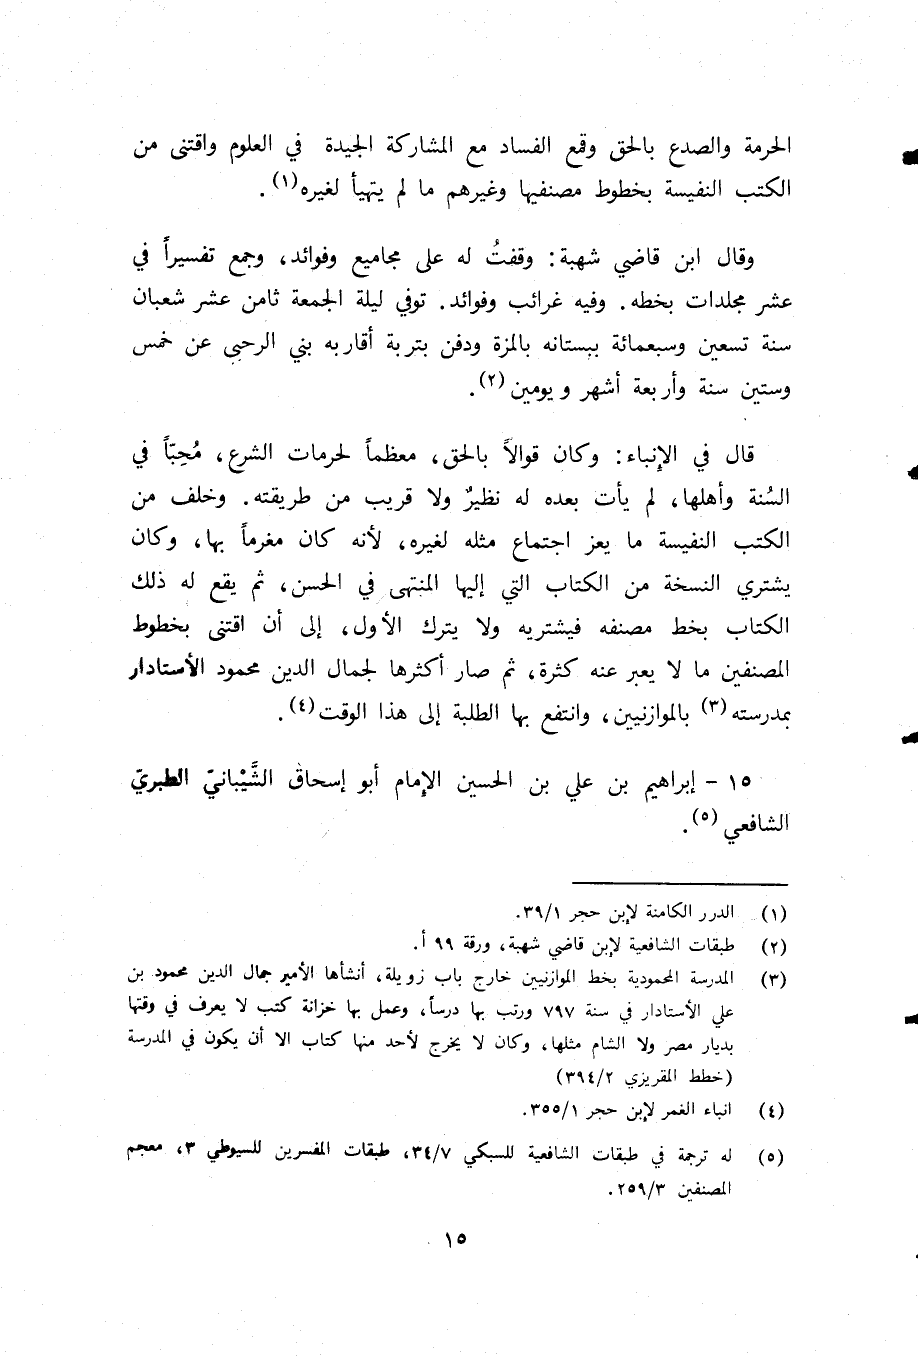 الحرمة والصدع بالحق وقمع الفساد مع المشاركة الجيدة في العلوم واقتنى من
الكتب النفيسة بخطوط مصنفيها وغيرهم ما لم يتهيأ لغيره(١).
وقال ابن قاضي شهبة: وقفتُ له على مجاميع وفوائد، وجمع تفسيراً في
عشر مجلدات بخطه. وفيه غرائب وفوائد. توفي ليلة الجمعة ثامن عشر شعبان
سنة تسعين وسبعمائة ببستانه بالمزة ودفن بتربة أقاربه بني الرحبي عن خمس
وستين سنة وأربعة أشهر و يومين(٢).
قال في الإنباء: وكان قوالاً بالحق، معظماً لحرمات الشرع، مُحِبّاً في
السُنة وأهلها، لم يأت بعده له نظيرٌ ولا قريب من طريقته. وخلف من
الكتب النفيسة ما يعز اجتماع مثله لغيره، لأنه كان مغرماً بها، وكان
يشتري النسخة من الكتاب التي إليها المنتهى في الحسن، ثم يقع له ذلك
الكتاب بخط مصنفه فيشتريه ولا يترك الأول، إلى أن اقتنى بخطوط
المصنفين ما لا يعبر عنه كثرة، ثم صار أكثرها لجمال الدين محمود الأستادار
بمدرسته(٣) بالموازنيين، وانتفع بها الطلبة إلى هذا الوقت(٤).
١٥ - إبراهيم بن علي بن الحسين الإمام أبو إسحاق الشَّيْبانيّ الطبريّ
الشافعي(٥).
(١) الدرر الكامنة لإبن حجر ٣٩/١.
(٢) طبقات الشافعية لإبن قاضي شهبة، ورقة ٩٩ أ.
(٣) المدرسة المحمودية بخط الموازنيين خارج باب زويلة، أنشأها الأمير جمال الدين محمود بن
علي الأستادار في سنة ٧٩٧ ورتب بها درساً، وعمل بها خزانة كتب لا يعرف في وقتها
بديار مصر ولا الشام مثلها، وكان لا يخرج لأحد منها كتاب الا أن يكون في المدرسة
(خطط المقريزي ٣٩٤/٢)
(٤) انباء الغمر لإبن حجر ٣٥٥/١.
(٥) له ترجمة في طبقات الشافعية للسبكي ٣٤/٧، طبقات المفسرين للسيوطي ٣، معجم
المصنفين ٢٥٩/٣.
١٥